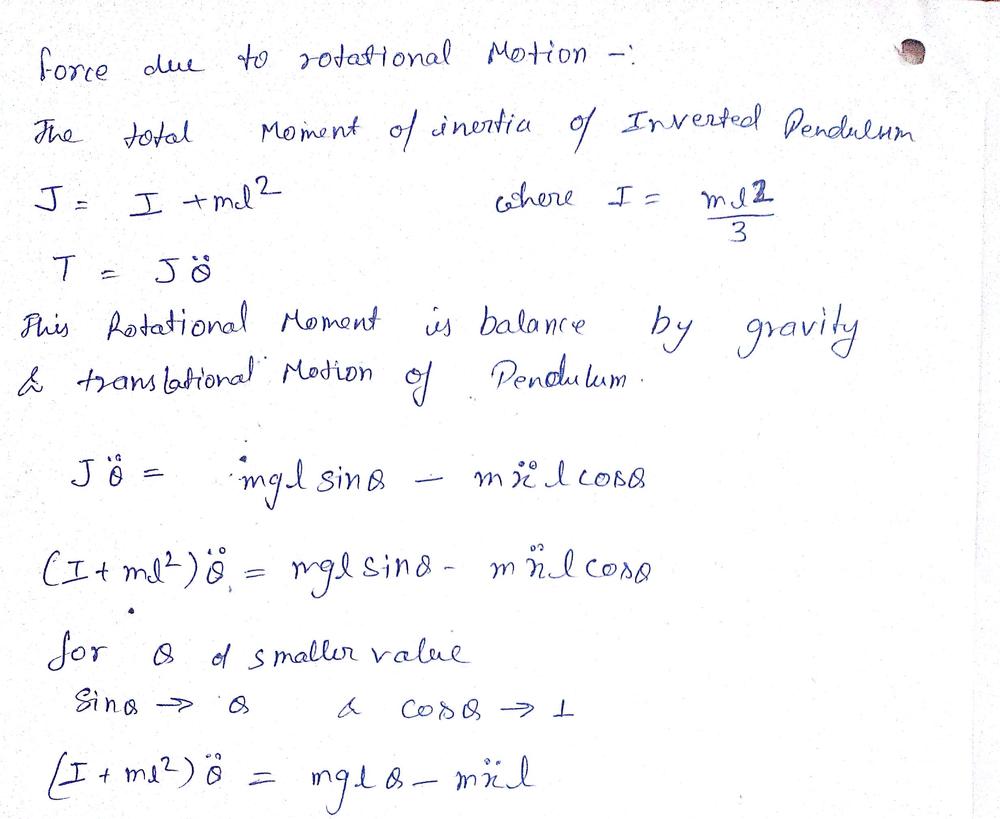 Force due to rotational Motion -:
The total Moment of inertia of Inverted Pendulum
J = I + ml² where I = ml²/3
T = Jθ̈
This Rotational Moment is balance by gravity
& translational Motion of Pendulum.
Jθ̈ = mgl sinθ - mẍl cosθ
(I + ml²)θ̈ = mgl sinθ - mẍl cosθ
for θ of smaller value
Sinθ → θ & cosθ → 1
(I + ml²)θ̈ = mglθ - mẍl